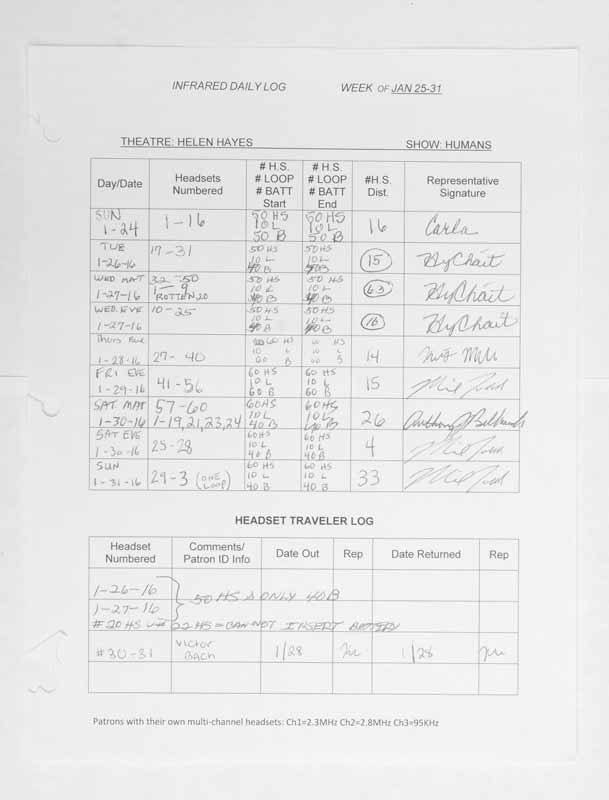 INFRARED DAILY LOG WEEK OF JAN 25-31
THEATRE: HELEN HAYES SHOW: HUMANS
Day/Date Headsets Numbered # H.S. # LOOP # BATT Start # H.S. # LOOP # BATT End #H.S. Dist. Representative Signature
SUN 1-24 1-16 50 HS 10 L 50 B 50 HS 10 L 50 B 16 Carla
TUE 1-26-16 17-31 50 HS 10 L 40 B 50 HS 10 L 40 B 15
WED MAT 1-27-16 32-50 1-9 ROTTEN, 20 50 HS 10 40 B 50 HS 10 L 40 B 63
WED. EVE 1-27-16 10-25 50 HS 10 L 40 B 50 HS 10 L 40 B 16
Thurs Eve 1-28-16 27-40 60 HS 10 L 60 B 60 HS 10 L 60 B 14
FRI EVE 1-29-16 41-56 60 HS 10 L 60 B 60 HS 10 L 60 B 15
SAT MAT 1-30-16 57-60 1-19,21,23,24 60 HS 10 L 40 B 60 HS 10 L 40 B 26 Anthony
SAT EVE 1-30-16 25-28 60 HS 10 L 40 B 60 HS 10 L 40 B 4
SUN 1-31-16 29-3 (ONE LOOP) 60 HS 10 L 40 B 60 HS 10 L 40 B 33
HEADSET TRAVELER LOG
Headset Numbered Comments/ Patron ID Info Date Out Rep Date Returned Rep
1-26-16
1-27-16 50 HS & ONLY 40 B
# 20 HS 22 HS = CAN NOT INSERT BATTERY
#30-31 VICTOR BACH 1/28 1/28
Patrons with their own multi-channel headsets: Ch1=2.3MHz Ch2=2.8MHz Ch3=95KHz